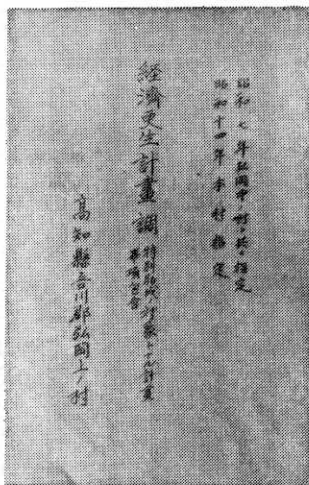 昭和七年弘岡中ノ村ト共ニ指定
昭和十四年本村指定
経済更生計畫調
特別助成ノ対象トナル計畫
事項包含
高知縣吾川郡弘岡上ノ村